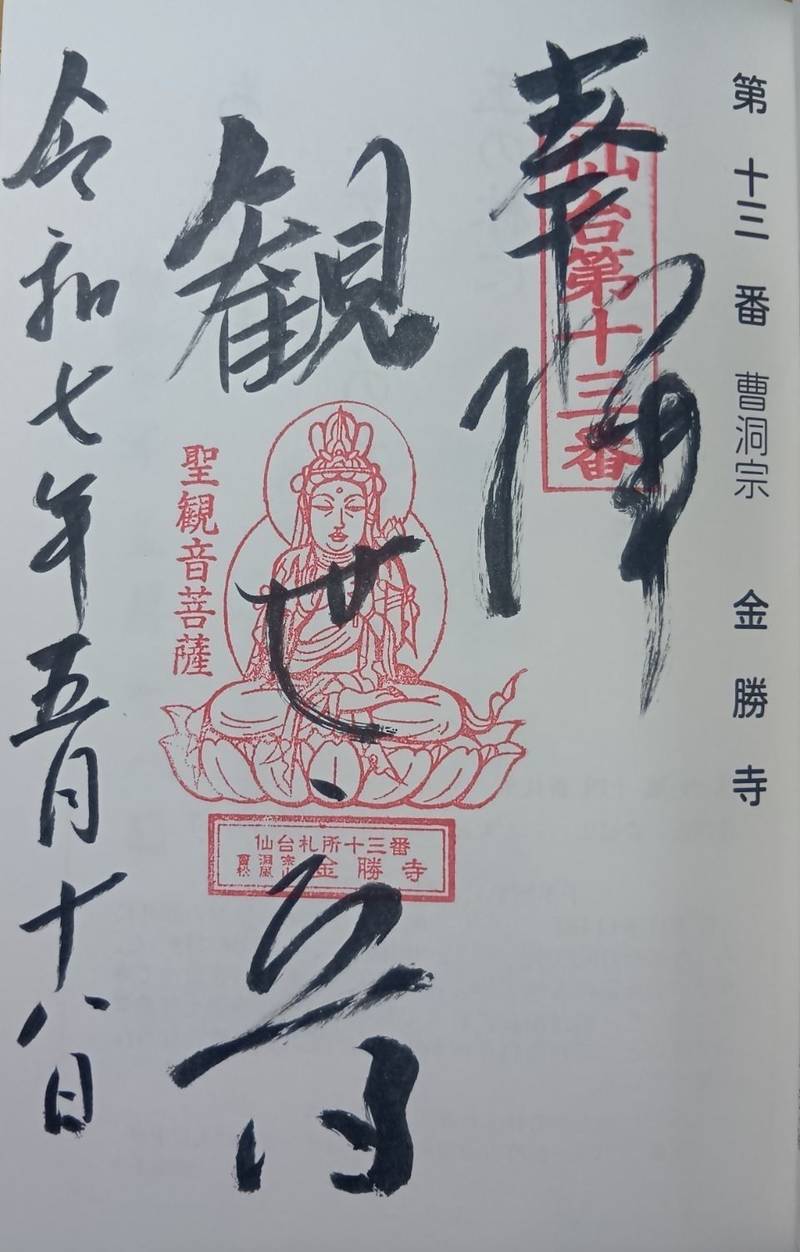 第十三番 曹洞宗 金勝寺
奉拝
仙台第十三番
観世音
聖観音菩薩
仙台札所十三番
曹洞宗 松風山 金勝寺
令和七年五月十八日